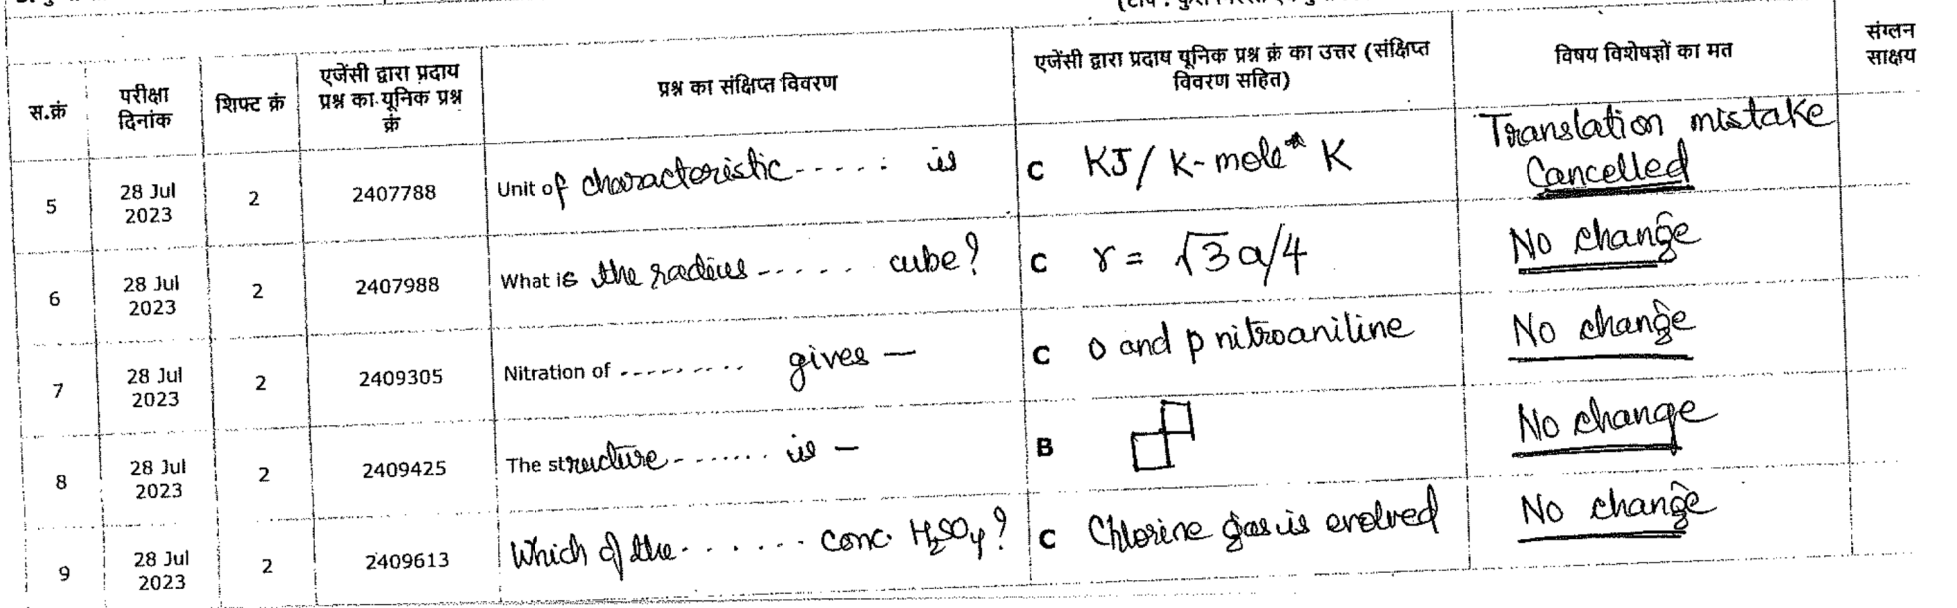 स.क्रं
परीक्षा
दिनांक
शिफ्ट क्रं
एजेंसी द्वारा प्रदाय
प्रश्न का यूनिक प्रश्न
क्रं
प्रश्न का संक्षिप्त विवरण
एजेंसी द्वारा प्रदाय यूनिक प्रश्न क्रं का उत्तर (संक्षिप्त
विवरण सहित)
विषय विशेषज्ञों का मत
संग्लन
साक्षय
5
28 Jul
2023
2
2407788
Unit of characteristic - - - - : is
C KJ/K-mole* K
Translation mistake
Cancelled
6
28 Jul
2023
2
2407988
What is the radius - - . . . cube?
C r = √3a/4
No change
7
28 Jul
2023
2
2409305
Nitration of - - - - - . . . . gives —
C o and p nitroaniline
No change
8
28 Jul
2023
2
2409425
The structure - - . . . . . is —
B
No change
9
28 Jul
2023
2
2409613
Which of the . . . . . . . conc. H₂SO₄?
C Chlorine gas is evolved
No change